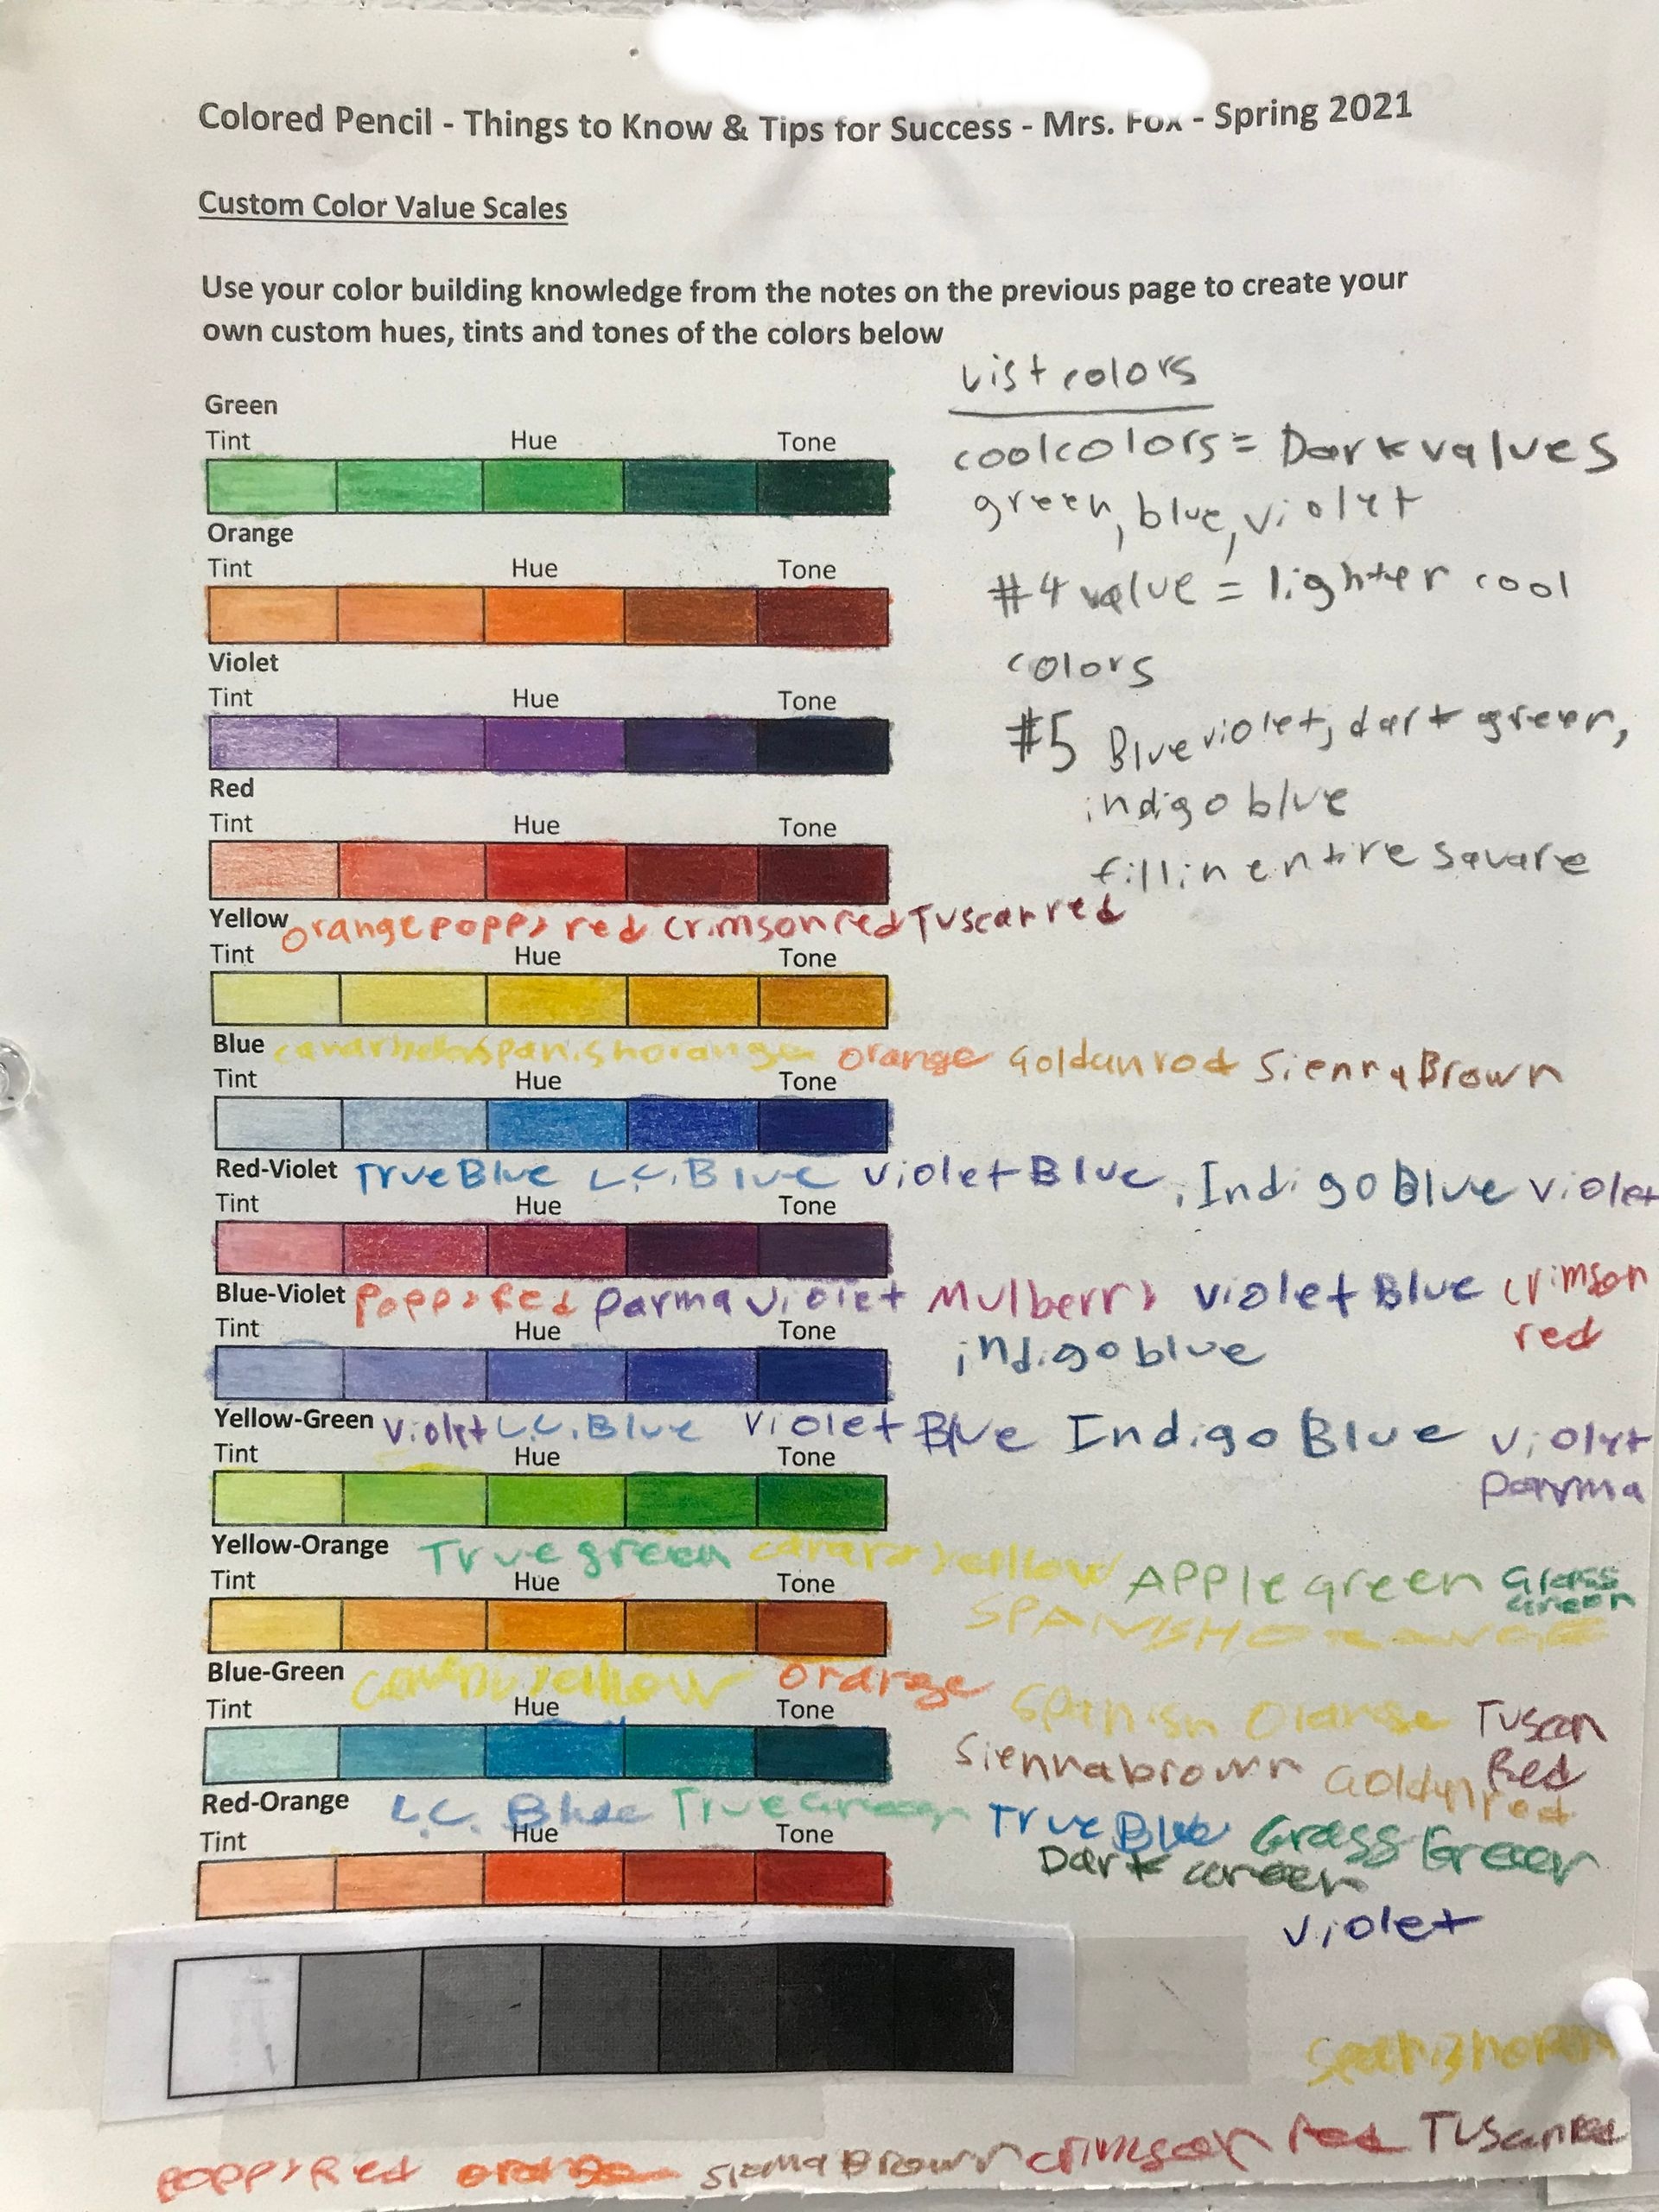 Colored Pencil - Things to Know & Tips for Success - Mrs. Fox - Spring 2021
Custom Color Value Scales
Use your color building knowledge from the notes on the previous page to create your
own custom hues, tints and tones of the colors below
List colors
Green
Tint Hue Tone
cool colors = Dark values
green, blue, violet
Orange
Tint Hue Tone
#4 value = lighter cool
colors
Violet
Tint Hue Tone
#5 Blue violet, dark green,
indigo blue
Red
Tint Hue Tone
fill in entire square
Yellow orange poppy red crimson red Tuscan red
Tint Hue Tone
Blue canary yellow spanish orange orange Goldanrod Sienna Brown
Tint Hue Tone
Red-Violet True Blue L.C. Blue Violet Blue, Indigo Blue violet
Tint Hue Tone
Blue-Violet Poppy Red parma violet Mulberry violet Blue crimson
red
Tint Hue Tone
indigo blue
Yellow-Green Violet L.C. Blue Violet Blue Indigo Blue violet
parma
Tint Hue Tone
Yellow-Orange True green canary yellow Apple green Grass
Green
Tint Hue Tone
SPANISH ORANGE
Blue-Green canary yellow orange Spanish Orange Tuscan
Red
Tint Hue Tone
Sienna brown Goldynrod
Red-Orange L.C. Blue True Green True Blue Grass Green
Tint Hue Tone
Dark Green
violet
Poppy Red orange Sienna Brown crimson Red Tuscan Red